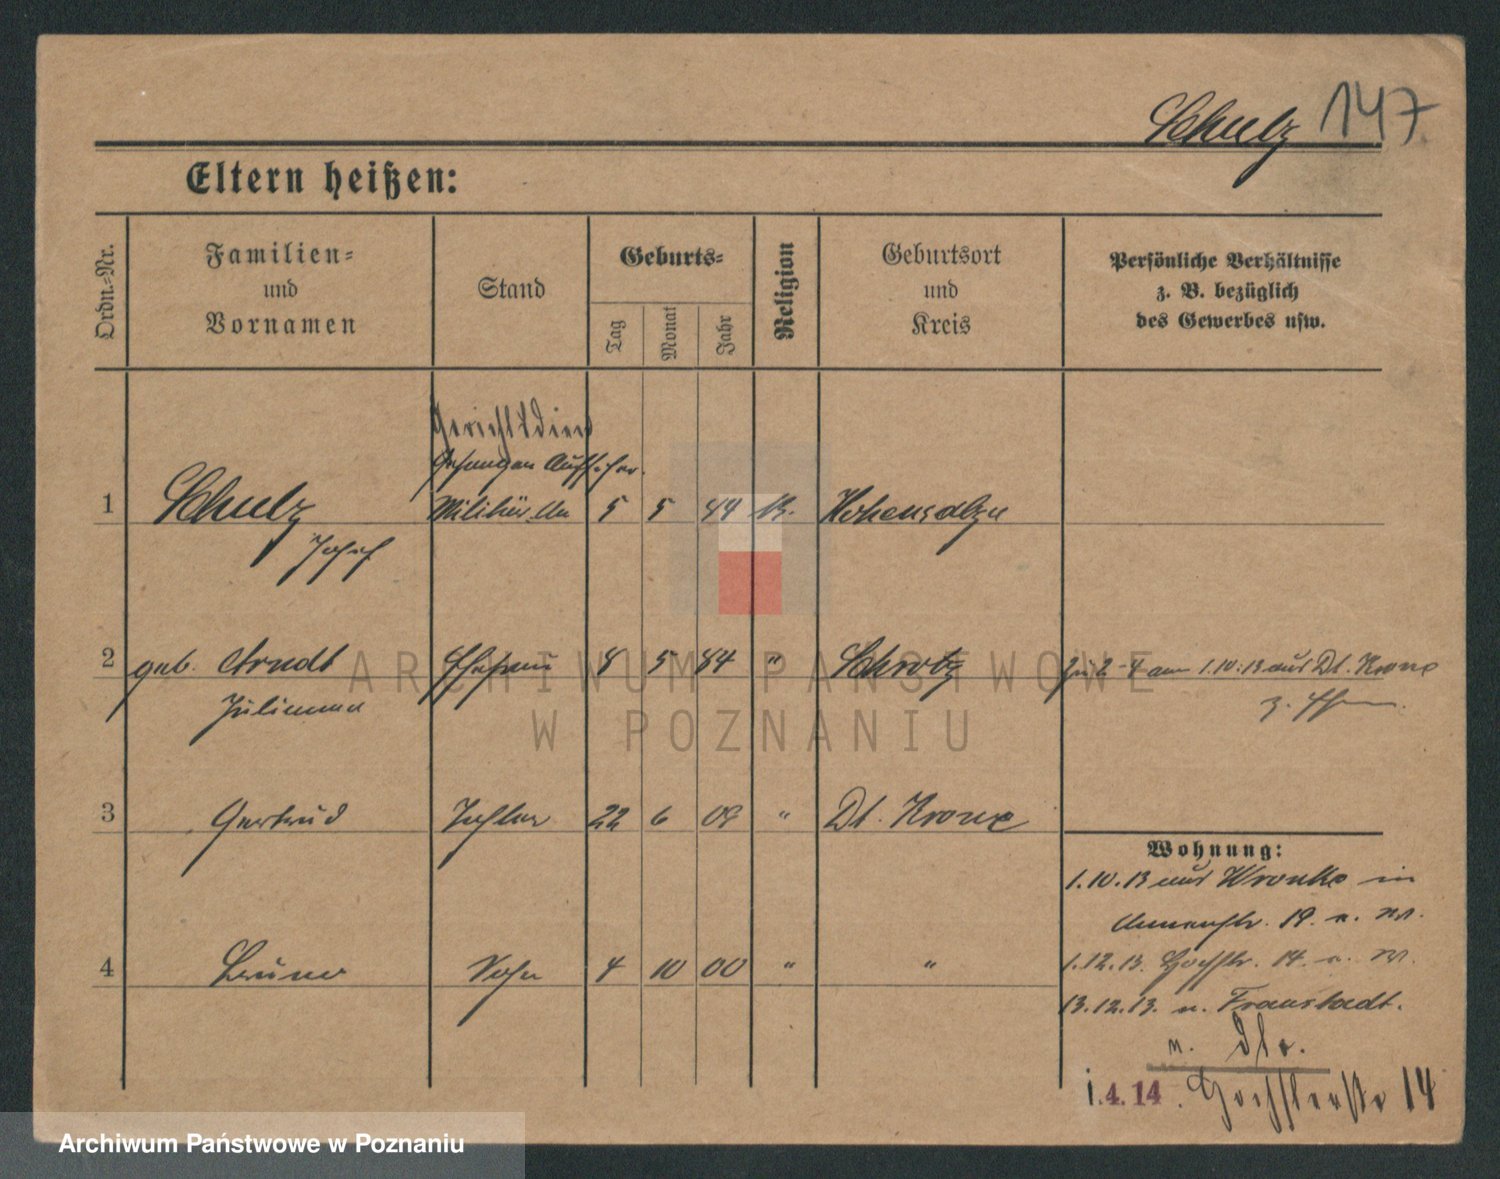 Schulz 147
Eltern heißen:
Ordn.-Nr.
Familien-
und
Vornamen
Stand
Geburts-
Tag
Monat
Jahr
Religion
Geburtsort
und
Kreis
Persönliche Verhältnisse
z. B. bezüglich
des Gewerbes usw.
Gerichtsdien
Gefangen Aufseher.
1 Schulz Militär 5 5 Hohensalza
Josef
2 geb. Arndt Ehefrau 8 5 84 " Schrotz Zu 2-4 am 1.10.13 aus Dt. Krone
Julianna z. Ehem.
3 Gertrud Tochter 22 6 09 " Dt. Krone
Wohnung:
1.10.13 aus Wronke in
19. n. nr.
4 Bruno Sohn 4 10 00 " "
1.12.13. 14. n. nr.
13.12.13. n. Fraustadt.
n.
1.4.14. 14
ARCHIWUM PAŃSTWOWE
W POZNANIU
Archiwum Państwowe w Poznaniu